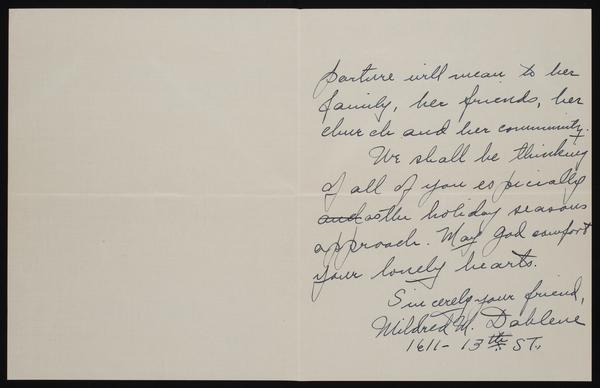 parture will mean to her
family, her friends, her
church and her community.
We shall be thinking
of all of you especially
and as the holiday seasons
approach. May God comfort
your lonely hearts.
Sincerely your friend,
Mildred M. Dahlene
1611 - 13th ST.,